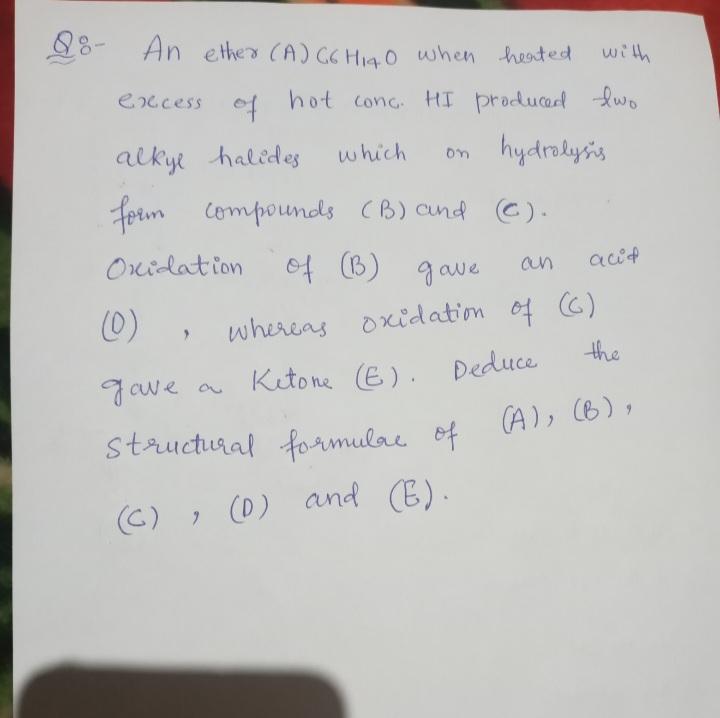 Q8- An ether (A) C6H14O when heated with
excess of hot conc. HI produced two
alkyl halides which on hydrolysis
form compounds (B) and (C).
Oxidation of (B) gave an acid
(D) , whereas oxidation of (C)
gave a Ketone (E). Deduce the
structural formulae of (A), (B),
(C) , (D) and (E).